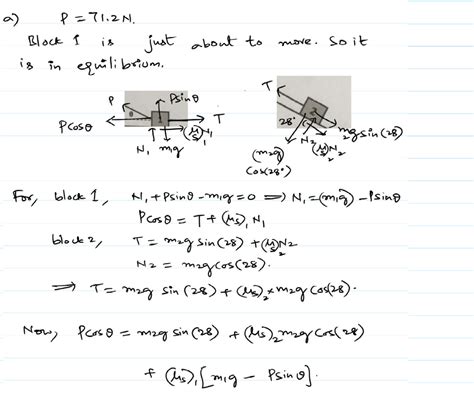 a) P = 71.2 N.
Block 1 is just about to move. So it
is in equilibrium.
P θ Psinθ Pcosθ 1 T N₁ m₁g (μs)₁N₁
T 2 28° N₂ m₂g sin(28) (μs)₂N₂ (m₂g) cos(28°)
For, block 1, N₁ + Psinθ - m₁g = 0 ⟹ N₁ = (m₁g) - Psinθ
Pcosθ = T + (μs)₁ N₁
block 2, T = m₂g sin(28) + (μs)₂ N₂
N₂ = m₂g cos(28).
⟹ T = m₂g sin(28) + (μs)₂ × m₂g cos(28).
Now, Pcosθ = m₂g sin(28) + (μs)₂ m₂g cos(28)
+ (μs)₁ [m₁g - Psinθ].